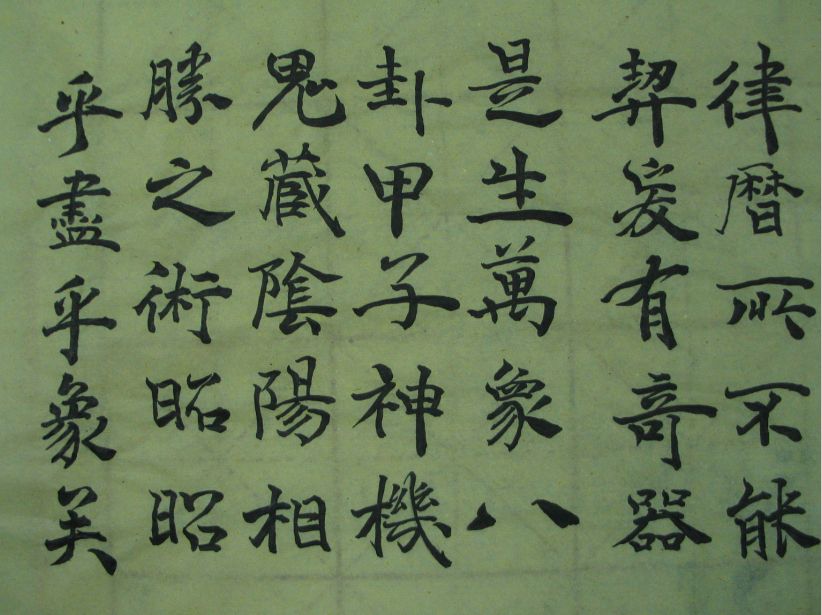 律曆所不能
契爰有奇器
是生萬象八
卦甲子神機
鬼藏陰陽相
勝之術昭昭
乎盡乎象矣